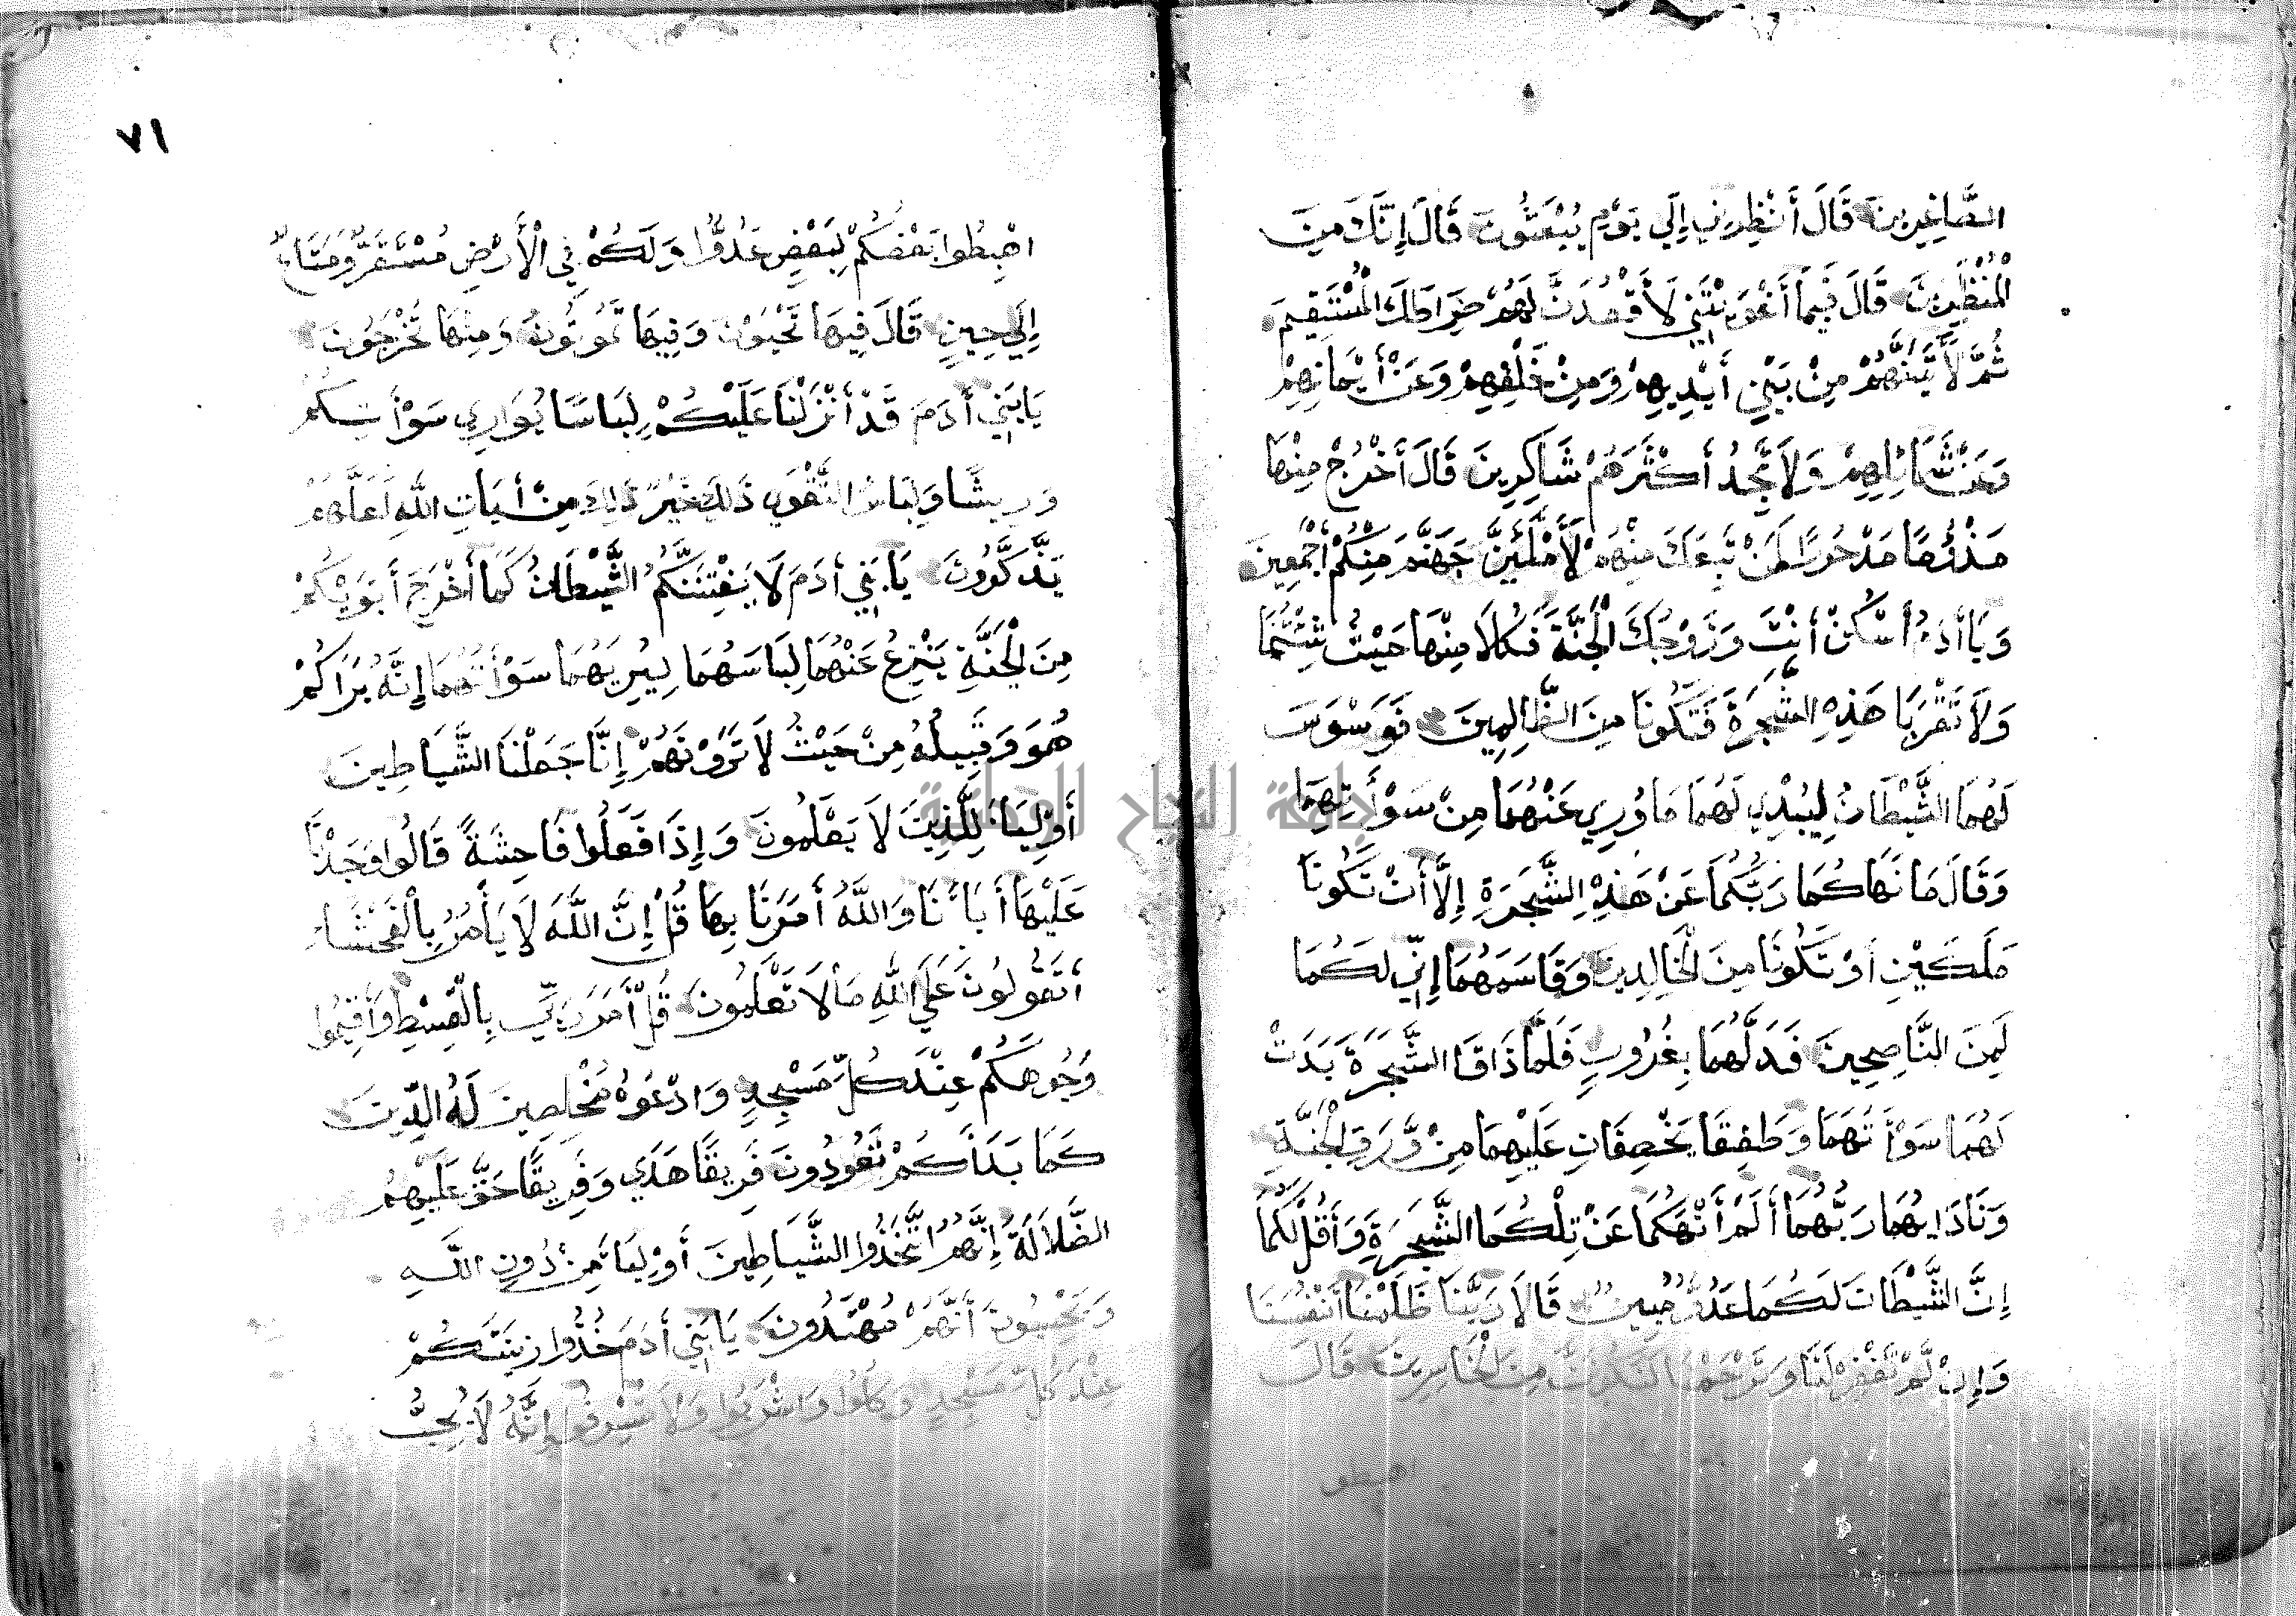 الصَّاغِرِينَ قَالَ أَنْظِرْنِي إِلَي يَوْمِ يُبْعَثُونَ قَالَ إِنَّكَ مِنَ
الْمُنْظَرِينَ قَالَ فَبِمَا أَغْوَيْتَنِي لَأَقْعُدَنَّ لَهُمْ صِرَاطَكَ الْمُسْتَقِيمَ
ثُمَّ لَأَتِيَنَّهُمْ مِنْ بَيْنِ أَيْدِيهِمْ وَمِنْ خَلْفِهِمْ وَعَنْ أَيْمَانِهِمْ
وَعَنْ شَمَائِلِهِمْ وَلَا تَجِدُ أَكْثَرَهُمْ شَاكِرِينَ قَالَ أَخْرُجْ مِنْهَا
مَذْئُومًا مَدْحُورًا لَمَنْ تَبِعَكَ مِنْهُمْ لَأَمْلَئَنَّ جَهَنَّمَ مِنْكُمْ أَجْمَعِينَ
وَيَا أَدَمُ أَسْكُنْ أَنْتَ وَزَوْجُكَ الْجَنَّةَ فَكُلَا مِنْهَا حَيْثُ شِئْتُمَا
وَلَا تَقْرَبَا هَذِهِ الشَّجَرَةَ فَتَكُونَا مِنَ الظَّالِمِينَ فَوَسْوَسَ
لَهُمَا الشَّيْطَانُ لِيُبْدِيَ لَهُمَا مَا وُرِيَ عَنْهُمَا مِنْ سَوْأَتِهِمَا
وَقَالَ مَا نَهَاكُمَا رَبُّكُمَا عَنْ هَذِهِ الشَّجَرَةِ إِلَّا أَنْ تَكُونَا
مَلَكَيْنِ أَوْ تَكُونَا مِنَ الْخَالِدِينَ وَقَاسَمَهُمَا إِنِّي لَكُمَا
لَمِنَ النَّاصِحِينَ فَدَلَّهُمَا بِغُرُورٍ فَلَمَّا ذَاقَا الشَّجَرَةَ بَدَتْ
لَهُمَا سَوْأَتُهُمَا وَطَفِقَا يَخْصِفَانِ عَلَيْهِمَا مِنْ وَّرَقِ الْجَنَّةِ
وَنَادَايهُمَا رَبُّهُمَا أَلَمْ أَنْهَكُمَا عَنْ تِلْكُمَا الشَّجَرَةِ وَأَقُلْ لَكُمَا
إِنَّ الشَّيْطَانَ لَكُمَا عَدُوٌّ مُّبِينٌ قَالَا رَبَّنَا ظَلَمْنَا أَنْفُسَنَا
وَإِنْ لَّمْ تَغْفِرْ لَنَا وَتَرْحَمْنَا لَنَكُونَنَّ مِنَ الْخَاسِرِينَ قَالَ
٧١
اهْبِطُوا بَعْضُكُمْ لِبَعْضٍ عَدُوٌّ وَلَكُمْ فِي الْأَرْضِ مُسْتَقَرٌّ وَّمَتَاعٌ
إِلَي حِينٍ قَالَ فِيهَا تَحْيَوْنَ وَفِيهَا تَمُوتُونَ وَمِنْهَا تُخْرَجُونَ
يَا بَنِي أَدَمَ قَدْ أَنْزَلْنَا عَلَيْكُمْ لِبَاسًا يُوَارِي سَوْأَتِكُمْ
وَرِيشًا وَلِبَاسُ التَّقْوَي ذَلِكَ خَيْرٌ ذَلِكَ مِنْ أَيَاتِ اللَّهِ لَعَلَّهُمْ
يَذَّكَّرُونَ يَا بَنِي أَدَمَ لَا يَفْتِنَنَّكُمُ الشَّيْطَانُ كَمَا أَخْرَجَ أَبَوَيْكُمْ
مِنَ الْجَنَّةِ يَنْزِعُ عَنْهُمَا لِبَاسَهُمَا لِيُرِيَهُمَا سَوْأَتِهُمَا إِنَّهُ يَرَاكُمْ
هُوَ وَقَبِيلُهُ مِنْ حَيْثُ لَا تَرَوْنَهُمْ إِنَّا جَعَلْنَا الشَّيَاطِينَ
أَوْلِيَاءَ لِلَّذِينَ لَا يَعْلَمُونَ وَإِذَا فَعَلُوا فَاحِشَةً قَالُوا وَجَدْنَا
عَلَيْهَا أَبَائَنَا وَاللَّهُ أَمَرَنَا بِهَا قُلْ إِنَّ اللَّهَ لَا يَأْمُرُ بِالْفَحْشَاءِ
أَتَقُولُونَ عَلَي اللَّهِ مَا لَا تَعْلَمُونَ قُلْ أَمَرَ رَبِّي بِالْقِسْطِ وَأَقِيمُوا
وُجُوهَكُمْ عِنْدَ كُلِّ مَسْجِدٍ وَادْعُوهُ مُخْلِصِينَ لَهُ الدِّينَ
كَمَا بَدَأَكُمْ تَعُودُونَ فَرِيقًا هَدَي وَفَرِيقًا حَقَّ عَلَيْهِمُ
الضَّلَالَةُ إِنَّهُمُ اتَّخَذُوا الشَّيَاطِينَ أَوْلِيَاءَ مِنْ دُونِ اللَّهِ
وَيَحْسَبُونَ أَنَّهُمْ مُهْتَدُونَ يَا بَنِي أَدَمَ خُذُوا زِينَتَكُمْ
عِنْدَ كُلِّ مَسْجِدٍ وَكُلُوا وَاشْرَبُوا وَلَا تُسْرِفُوا إِنَّهُ لَا يُحِبُّ
جامعة النجاح الوطنية